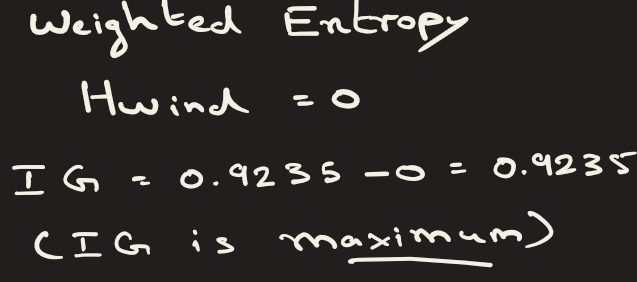 Weighted Entropy
Hwind = 0
IG = 0.9235 - 0 = 0.9235
(IG is maximum)